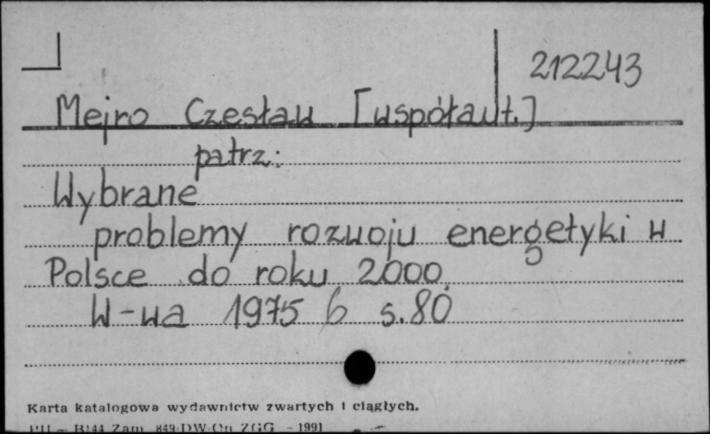 212243
Mejro Czesław [współaut.]
patrz:
Wybrane
problemy rozwoju energetyki w
Polsce do roku 2000.
W-wa 1975 b s.80
Karta katalogowa wydawnictw zwartych i ciągłych.
Zam. 849 DW-On ZGG - 1991